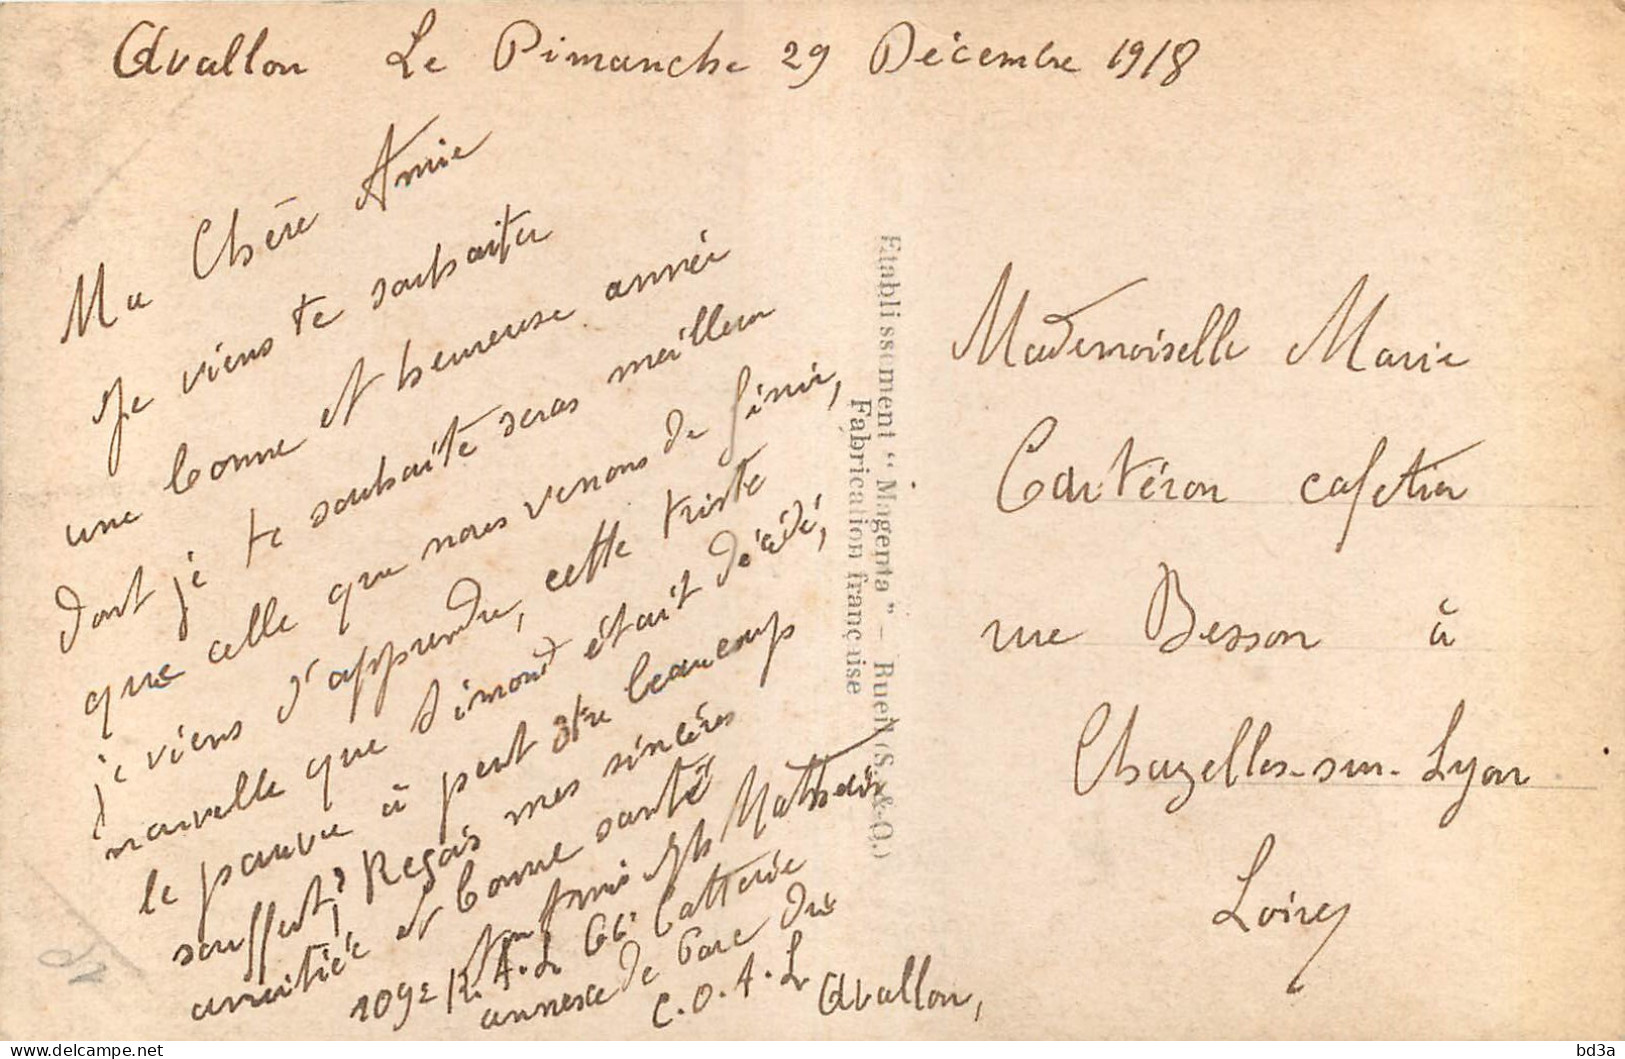 Avallon Le Dimanche 29 Décembre 1918
Ma Chère Amie
Je viens te souhaiter
une bonne et heureuse année
dont je te souhaite seras meilleur
que celle que nous venons de finir,
je viens d'apprendre, cette triste
nouvelle que Simond était décédé,
le pauvre à peut être beaucoup
souffert? Reçois mes sincères
amitiée et bonne santé
ton Amie
109e R. A. L. 66e batterie
annexe de Parc du
C. O. A. L Avallon,
Etablissement "Magenta" – Rueil (S.-&-O.)
Fabrication française
Mademoiselle Marie
Cartéron cafetier
rue Besson à
Chazelles-sur-Lyon
Loire
bd3a